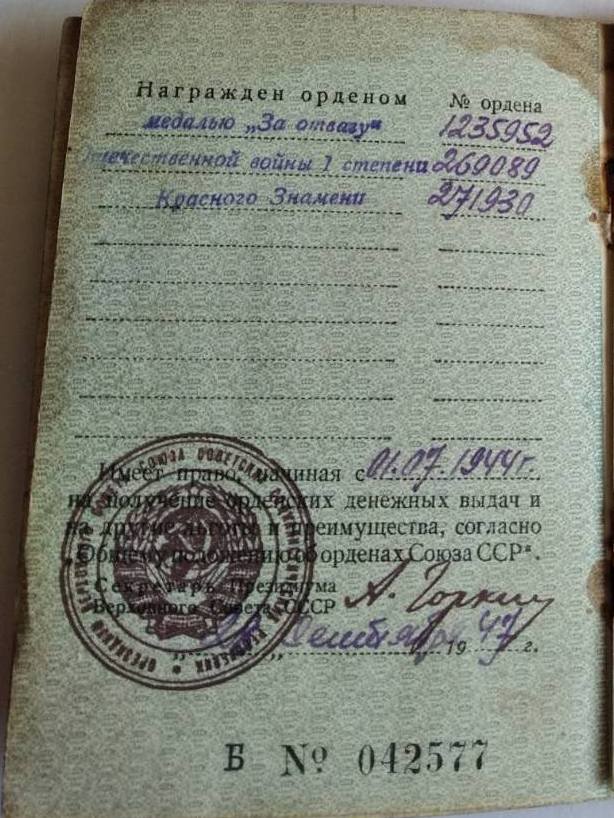 Награжден орденом № ордена
медалью „За отвагу“ 1235952
Отечественной войны 1 степени 269089
Красного Знамени 271930
Имеет право, начиная с 01.07.1944 г.
на получение орденских денежных выдач и
на другие льготы и преимущества, согласно
„Общему положению об орденах Союза ССР“.
Секретарь Президиума
Верховного Совета СССР А. Горкин
„ “ Сентября 1947 г.
Б № 042577